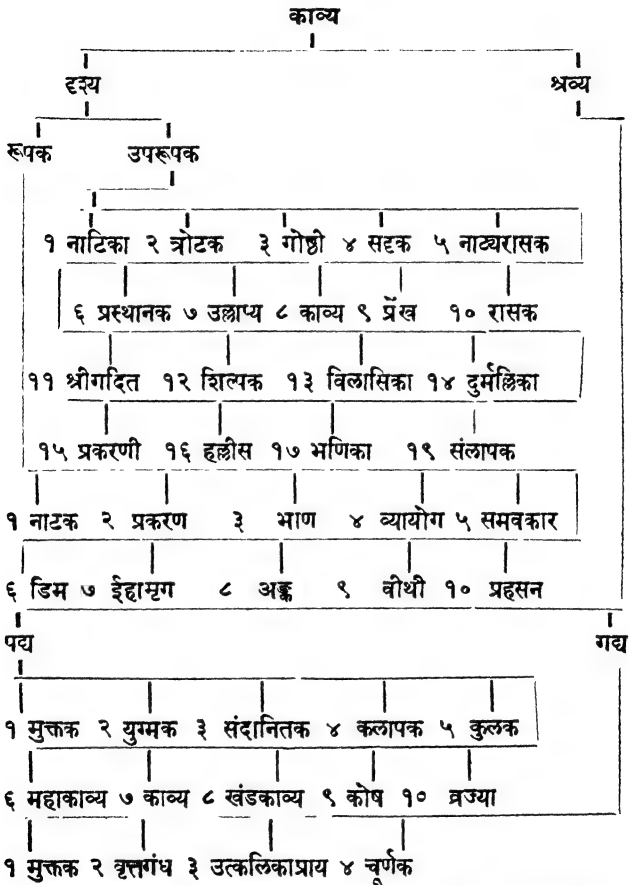 काव्य
दृश्य श्रव्य
रूपक उपरूपक
१ नाटिका २ त्रोटक ३ गोष्ठी ४ सट्टक ५ नाट्यरासक
६ प्रस्थानक ७ उल्लाप्य ८ काव्य ९ प्रेंख १० रासक
११ श्रीगदित १२ शिल्पक १३ विलासिका १४ दुर्मल्लिका
१५ प्रकरणी १६ हल्लीस १७ भणिका १९ संलापक
१ नाटक २ प्रकरण ३ भाण ४ व्यायोग ५ समवकार
६ डिम ७ ईहामृग ८ अङ्क ९ वीथी १० प्रहसन
पद्य गद्य
१ मुक्तक २ युग्मक ३ संदानितक ४ कलापक ५ कुलक
६ महाकाव्य ७ काव्य ८ खंडकाव्य ९ कोष १० व्रज्या
१ मुक्तक २ वृत्तगंध ३ उत्कलिकाप्राय ४ चूर्णक